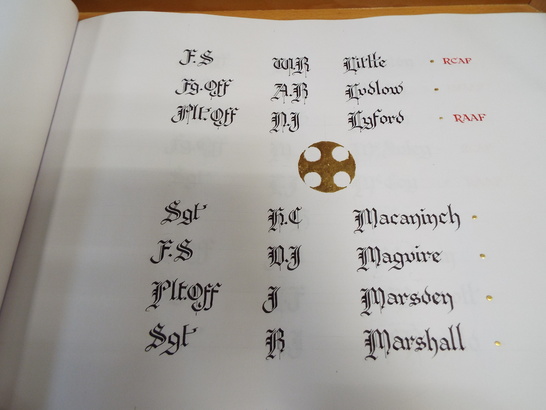 F.S W.R Little • RCAF
Fg.Off A.B Ludlow •
Plt.Off D.J Lyford • RAAF
Sgt H.C Macaninch •
F.S D.J Maguire •
Plt.Off J Marsden •
Sgt B Marshall •